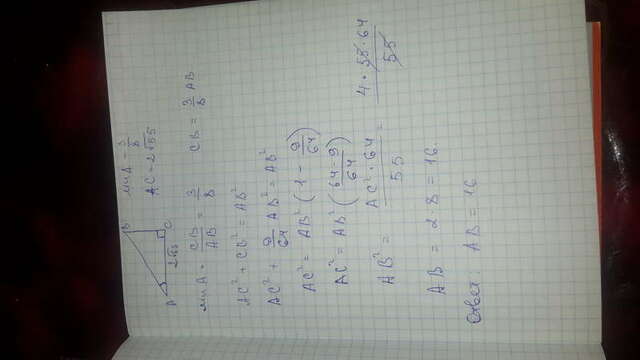 B
A
C
2√55
sin A = 3/8
AC = 2√55
sin A = CB/AB = 3/8 CB = 3/8 AB
AC² + CB² = AB²
AC² + 9/64 AB² = AB²
AC² = AB² (1 - 9/64)
AC² = AB² (64-9/64)
AB² = AC² · 64/55 = 4 · 55 · 64/55
AB = 2 8 = 16.
Ответ: AB = 16